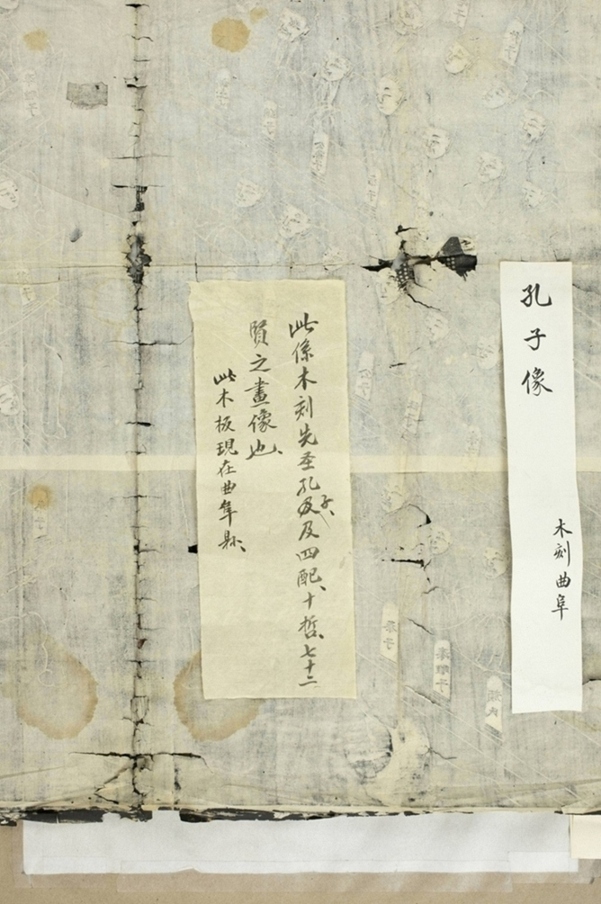 孔子像
木刻曲阜
此係木刻先圣孔子及四配、十哲、七十二
賢之畫像也、
此木板現在曲阜县、